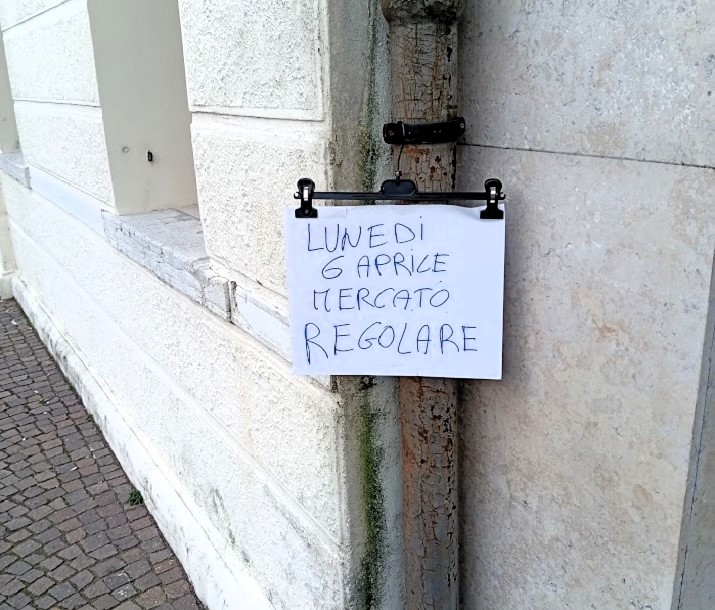 LUNEDÌ
6 APRILE
MERCATO
REGOLARE